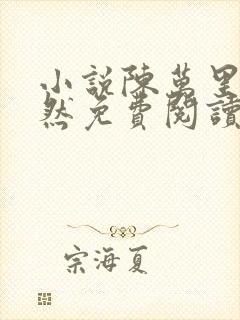 小說陳萬里
然免費閱讀
宗海夏